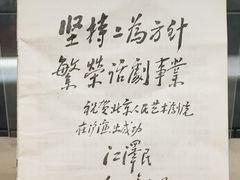 坚持二为方针
繁荣话劇事業
祝贺北京人民艺术剧院
在沪演出成功
江澤民